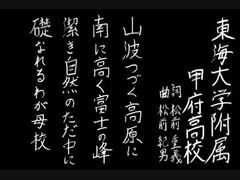 東海大学附属
甲府高校
詞 松前 重義
曲 松前 紀男
山波つづく高原に
南に高く富士の峰
潔き自然のただ中に
礎なれるわが母校